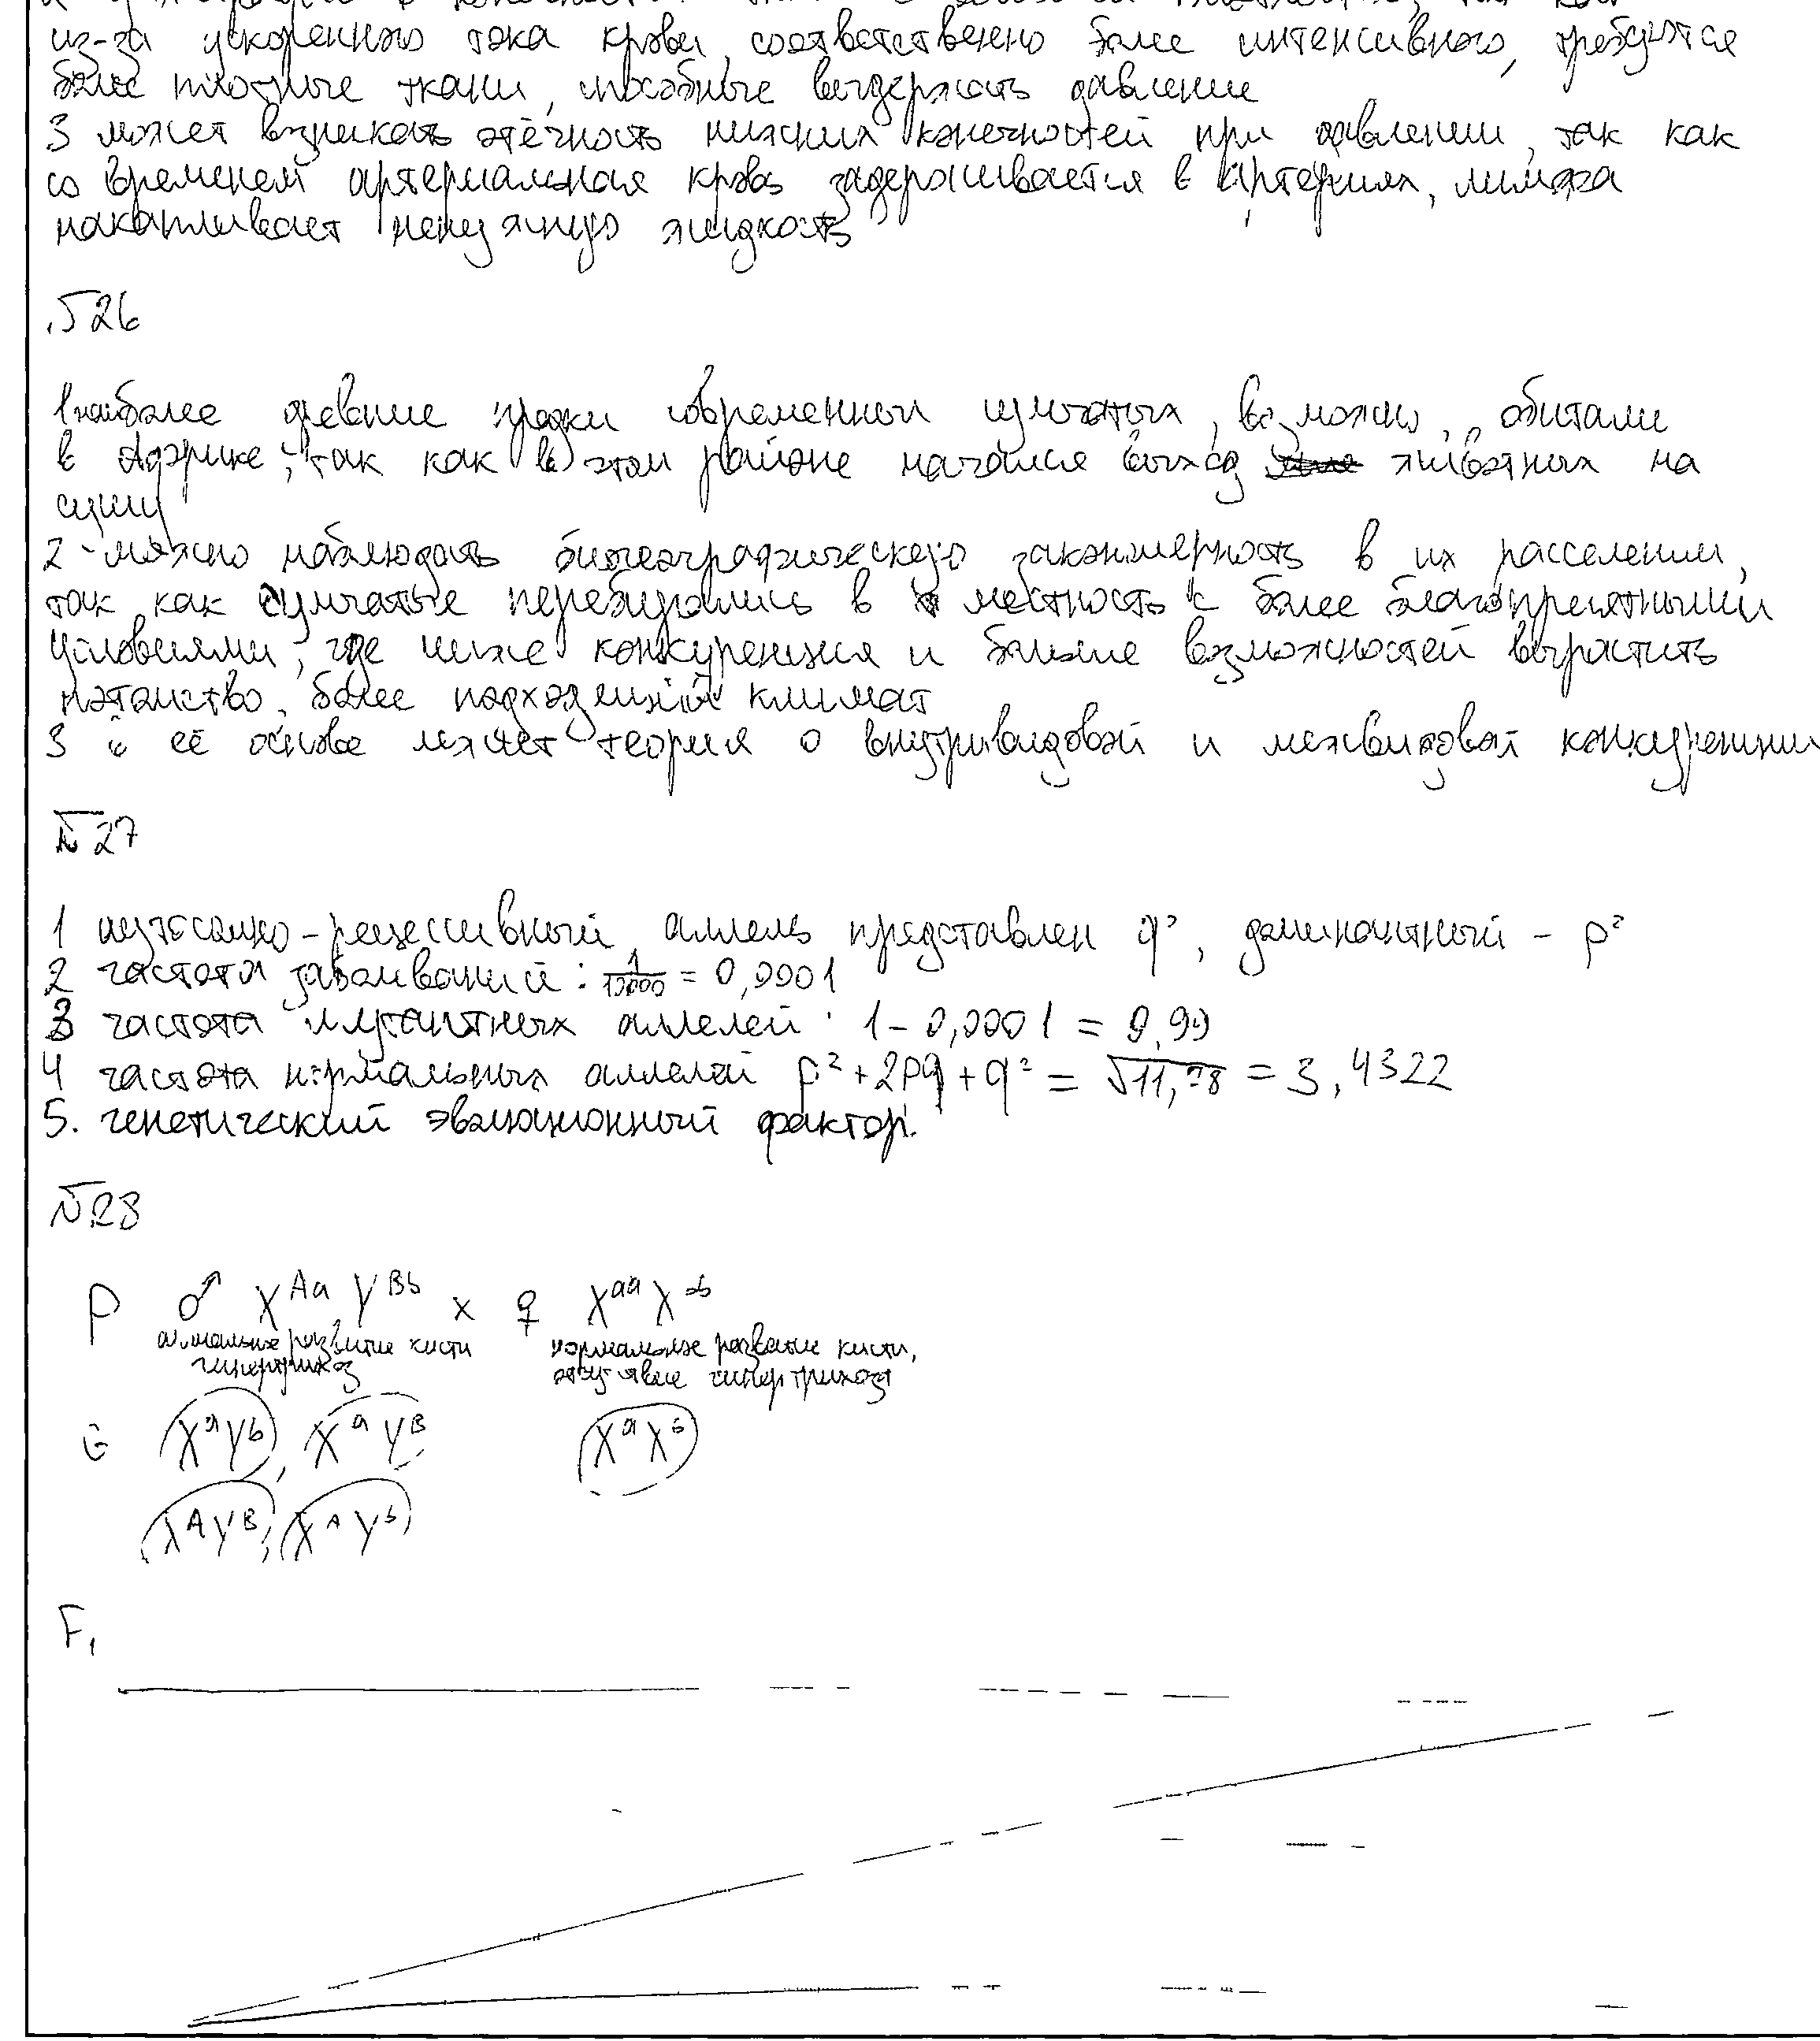 из-за ускоренного тока крови, соответственно более интенсивного, требуются
более плотные ткани, способные выдержать давление
3 может возникать отёчность нижних конечностей при давлении, так как
со временем артериальная кровь задерживается в артериях, лимфа
накапливает ненужную жидкость
№26
1 наиболее древние предки современной сумчатых, возможно, обитали
в Африке, так как в этом районе начался выход животных на
сушу
2 - можно наблюдать биогеографическую закономерность в их расселении,
так как сумчатые перебирались в местность с более благоприятными
условиями, где ниже конкуренция и больше возможностей вырастить
потомство, более подходящий климат
3 в её основе лежит теория о внутривидовой и межвидовой конкуренции
№27
1 аутосомно-рецессивный аллель представлен q², доминантный - p²
2 частота заболеваний: 1/10000 = 0,0001
3 частота мутантных аллелей: 1 - 0,0001 = 0,99
4 частота нормальных аллелей p² + 2pq + q² = √11,78 = 3,4322
5. генетический эволюционный фактор.
№28
P ♂ X^Aa Y^Bb x ♀ X^aa X^bb
аномальное развитие кисти нормальное развитие кисти,
гипертрихоз отсутствие гипертрихоза
G X^a Y^b, X^a Y^B X^a X^b
X^A Y^B, X^A Y^b
F₁